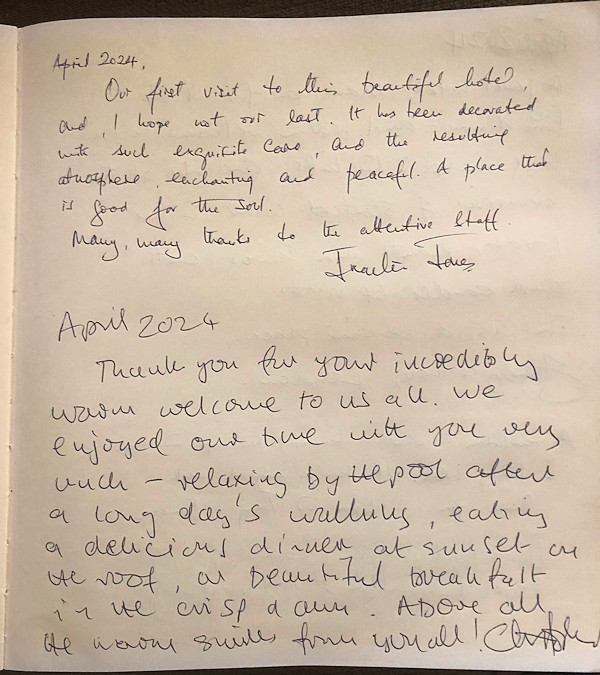 April 2024.
Our first visit to this beautiful hotel,
and, I hope not our last. It has been decorated
with such exquisite care, and the resulting
atmosphere, enchanting and peaceful. A place that
is good for the soul.
Many, many thanks to the attentive staff.
Jones
April 2024
Thank you for your incredibly
warm welcome to us all. We
enjoyed our time with you very
much – relaxing by the pool after
a long day's walking, eating
a delicious dinner at sunset on
the roof, or beautiful breakfast
in the crisp dawn. Above all
the warm smiles from you all!